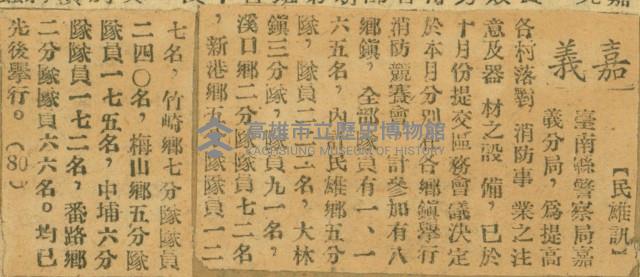 嘉義
【民雄訊】
臺南縣警察局嘉
義分局，為提高
各村落對消防事業之注
意及器材之設備，已於
十月份提交區務會議決定
於本月分別在各鄉鎮舉行
消防競賽會，計參加有八
鄉鎮，全部隊員有一、一
六五名，內民雄鄉五分
隊，隊員二二名，大林
鎮三分隊，隊員九一名，
溪口鄉二分隊隊員七二名
，新港鄉五分隊隊員一二
七名，竹崎鄉七分隊隊員
二四〇名，梅山鄉五分隊
隊員一七五名，中埔六分
隊隊員一七二名，番路鄉
二分隊隊員六六名。均已
先後舉行。（80）
高雄市立歷史博物館
KAOHSIUNG MUSEUM OF HISTORY